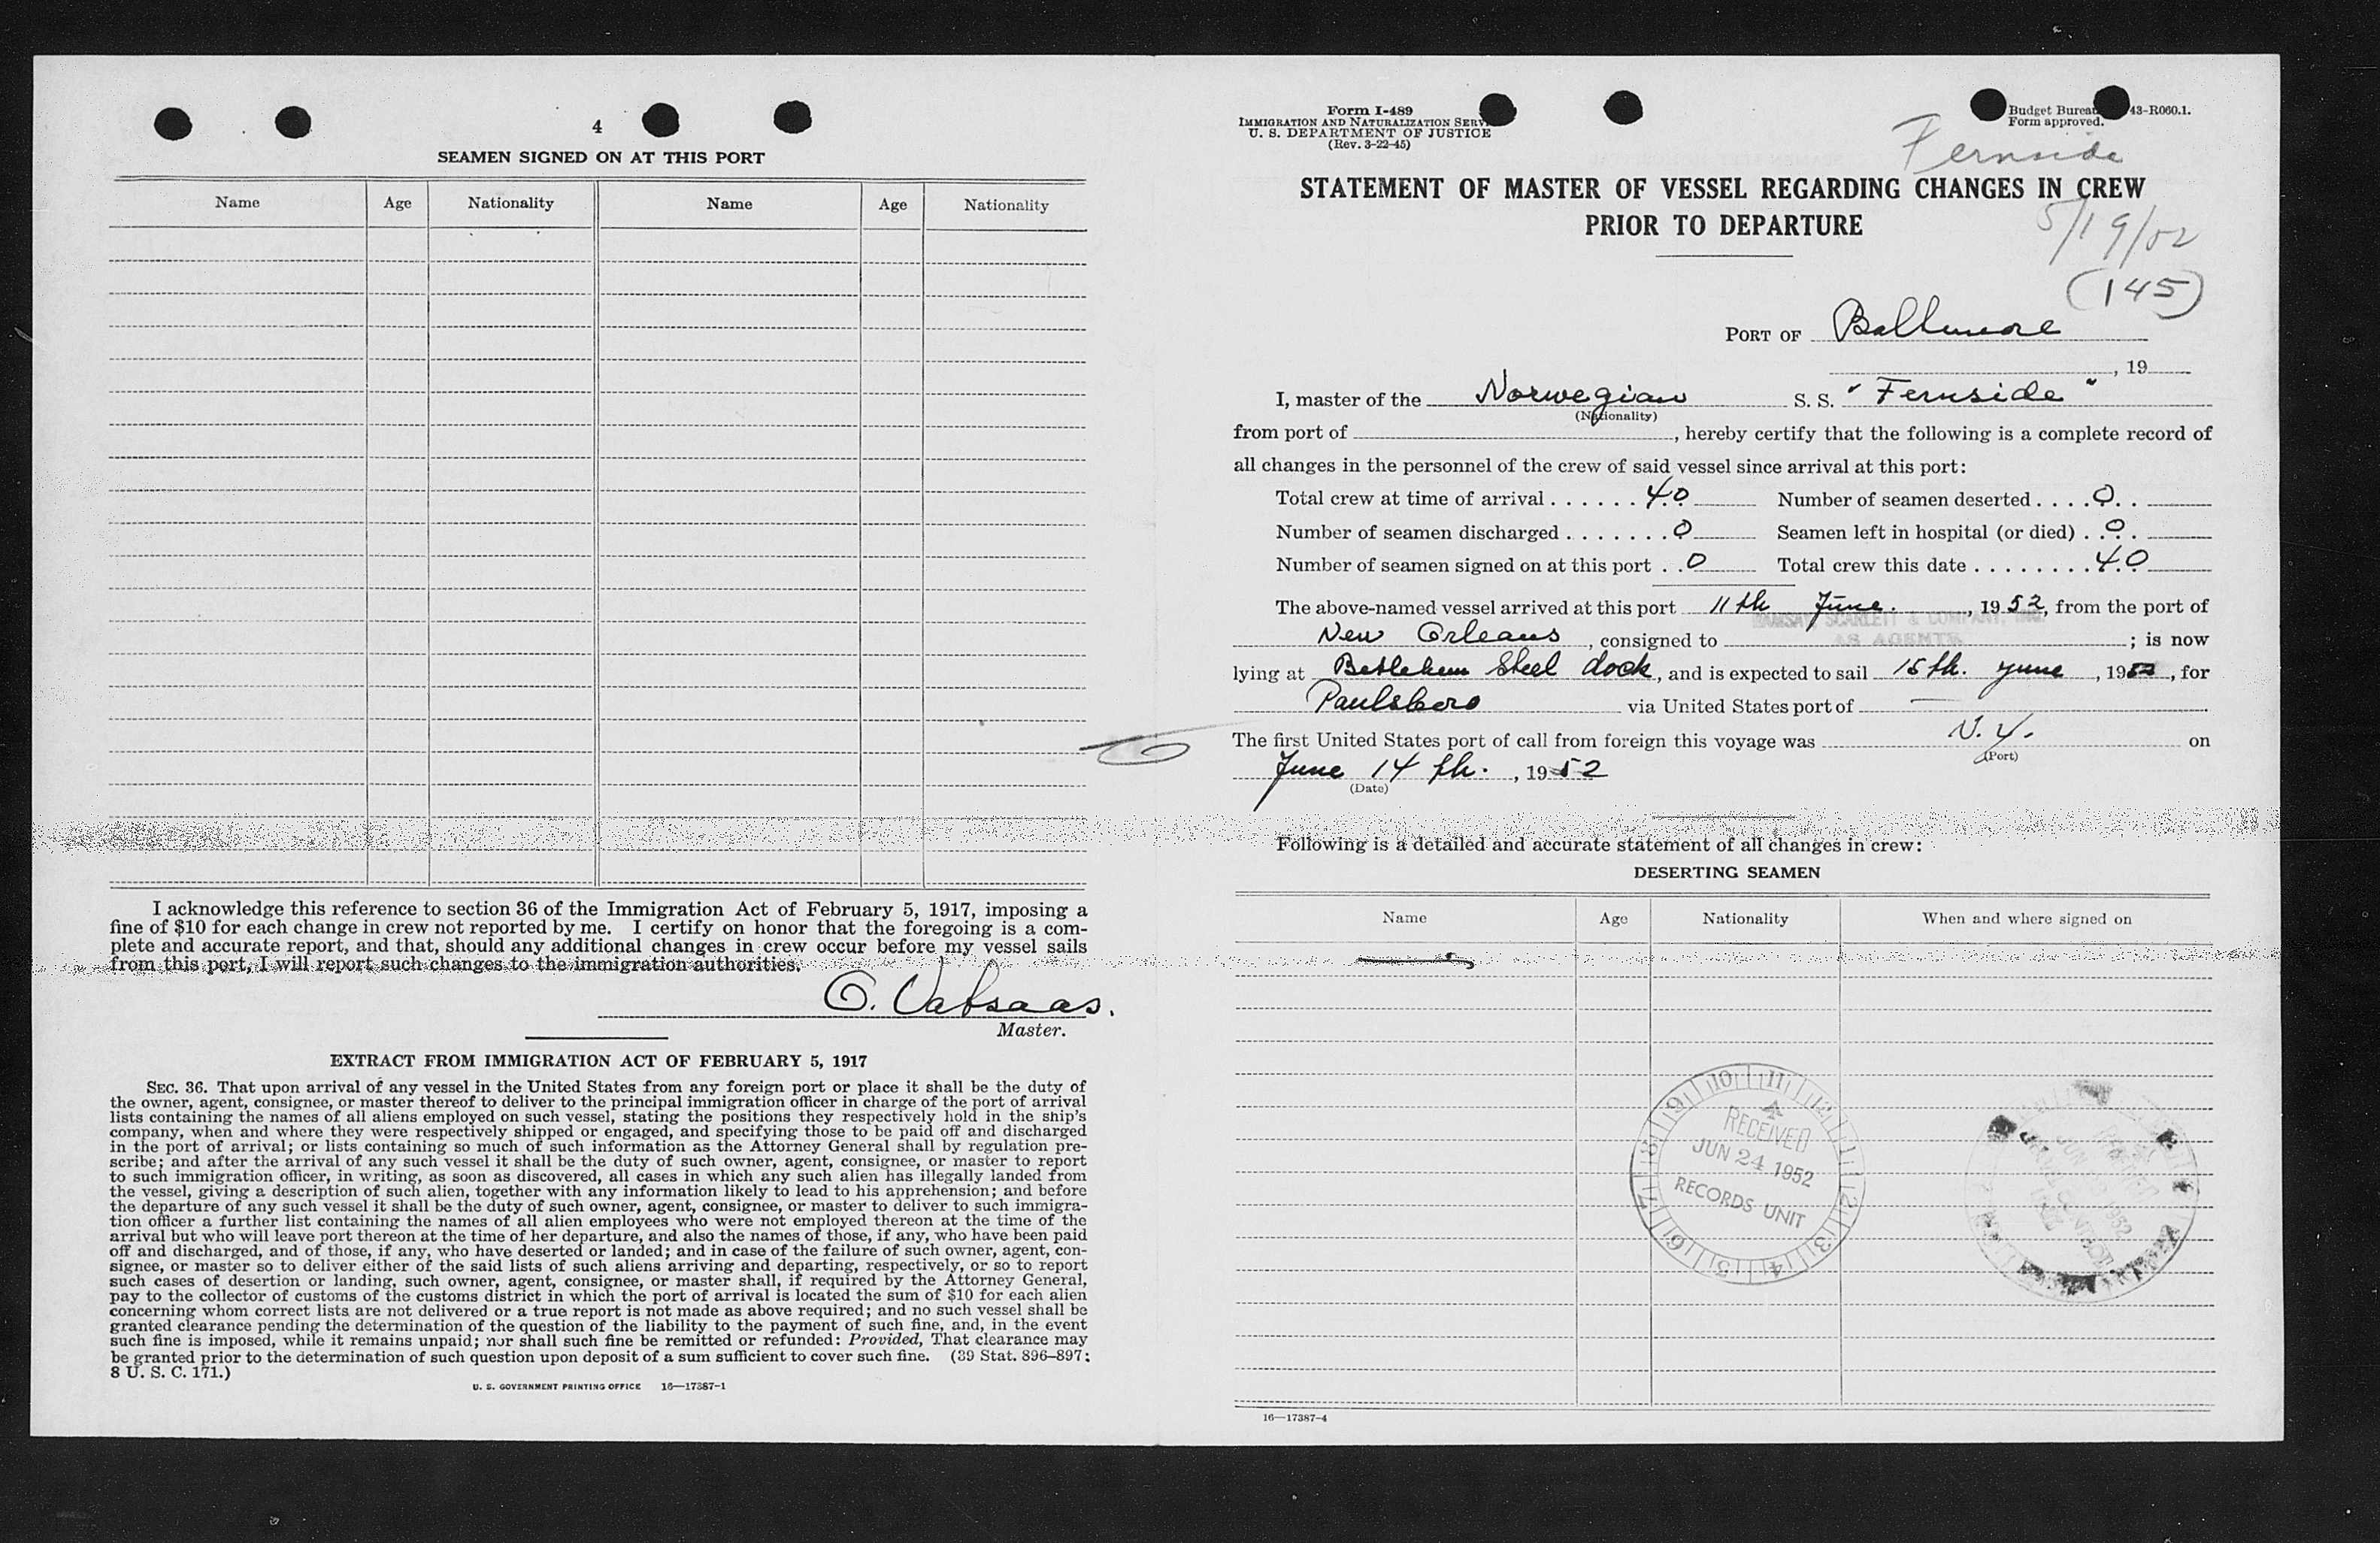 4
SEAMEN SIGNED ON AT THIS PORT
Name Age Nationality Name Age Nationality
I acknowledge this reference to section 36 of the Immigration Act of February 5, 1917, imposing a
fine of $10 for each change in crew not reported by me. I certify on honor that the foregoing is a com-
plete and accurate report, and that, should any additional changes in crew occur before my vessel sails
from this port, I will report such changes to the immigration authorities.
O. Vatsaas.
Master.
EXTRACT FROM IMMIGRATION ACT OF FEBRUARY 5, 1917
SEC. 36. That upon arrival of any vessel in the United States from any foreign port or place it shall be the duty of
the owner, agent, consignee, or master thereof to deliver to the principal immigration officer in charge of the port of arrival
lists containing the names of all aliens employed on such vessel, stating the positions they respectively hold in the ship's
company, when and where they were respectively shipped or engaged, and specifying those to be paid off and discharged
in the port of arrival; or lists containing so much of such information as the Attorney General shall by regulation pre-
scribe; and after the arrival of any such vessel it shall be the duty of such owner, agent, consignee, or master to report
to such immigration officer, in writing, as soon as discovered, all cases in which any such alien has illegally landed from
the vessel, giving a description of such alien, together with any information likely to lead to his apprehension; and before
the departure of any such vessel it shall be the duty of such owner, agent, consignee, or master to deliver to such immigra-
tion officer a further list containing the names of all alien employees who were not employed thereon at the time of the
arrival but who will leave port thereon at the time of her departure, and also the names of those, if any, who have been paid
off and discharged, and of those, if any, who have deserted or landed; and in case of the failure of such owner, agent, con-
signee, or master so to deliver either of the said lists of such aliens arriving and departing, respectively, or so to report
such cases of desertion or landing, such owner, agent, consignee, or master shall, if required by the Attorney General,
pay to the collector of customs of the customs district in which the port of arrival is located the sum of $10 for each alien
concerning whom correct lists are not delivered or a true report is not made as above required; and no such vessel shall be
granted clearance pending the determination of the question of the liability to the payment of such fine, and, in the event
such fine is imposed, while it remains unpaid; nor shall such fine be remitted or refunded: Provided, That clearance may
be granted prior to the determination of such question upon deposit of a sum sufficient to cover such fine. (39 Stat. 896–897;
8 U. S. C. 171.)
U. S. GOVERNMENT PRINTING OFFICE 16—17387-1
Form I-489
IMMIGRATION AND NATURALIZATION
U. S. DEPARTMENT OF JUSTICE
(Rev. 3-22-45)
Budget Bureau 43-R060.1.
Form approved.
Fernside
STATEMENT OF MASTER OF VESSEL REGARDING CHANGES IN CREW
PRIOR TO DEPARTURE
5/19/52
(145)
PORT OF Baltimore
, 19
I, master of the Norwegian S. S. "Fernside"
(Nationality)
from port of , hereby certify that the following is a complete record of
all changes in the personnel of the crew of said vessel since arrival at this port:
Total crew at time of arrival 40 Number of seamen deserted 0
Number of seamen discharged 0 Seamen left in hospital (or died) 0
Number of seamen signed on at this port 0 Total crew this date 40
The above-named vessel arrived at this port 11th June. , 1952, from the port of
RAMSAY, SCARLETT & COMPANY, INC.
New Orleans , consigned to AS AGENTS ; is now
lying at Betlehem Steel dock, and is expected to sail 15th. June , 1952, for
Paulsboro via United States port of —
The first United States port of call from foreign this voyage was N.Y. on
(Port)
June 14th. , 1952
(Date)
Following is a detailed and accurate statement of all changes in crew:
DESERTING SEAMEN
Name Age Nationality When and where signed on
10 11 12 1 2 3 4 5 6 7 8 9
A
RECEIVED
JUN 24 1952
RECORDS UNIT
16—17387-4